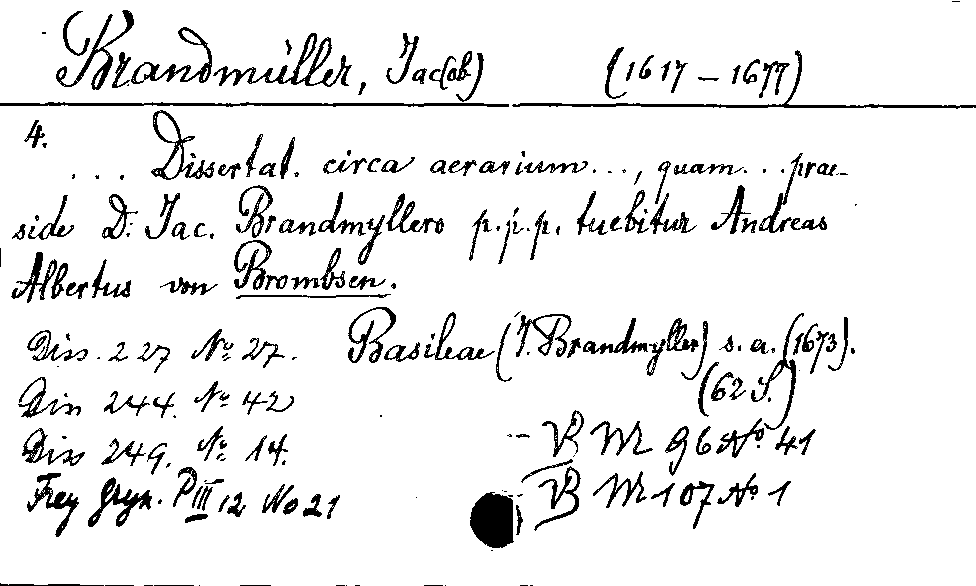 Brandmüller, Jac(ob.) (1617 – 1677)
4.
... Dissertat. circa aerarium..., quam...prae-
side D. Jac. Brandmyllero p.j.p. tuebitur Andreas
Albertus von Brombsen.
Diss. 227 No. 27. Basileae (J. Brandmyller) s. a. (1673).
(62 S.)
Diss 244. No. 42
Diss 249. No. 14. - VB M 96 No 41
Frey Gryn. P III 12 No 21 - VB M 107 No 1